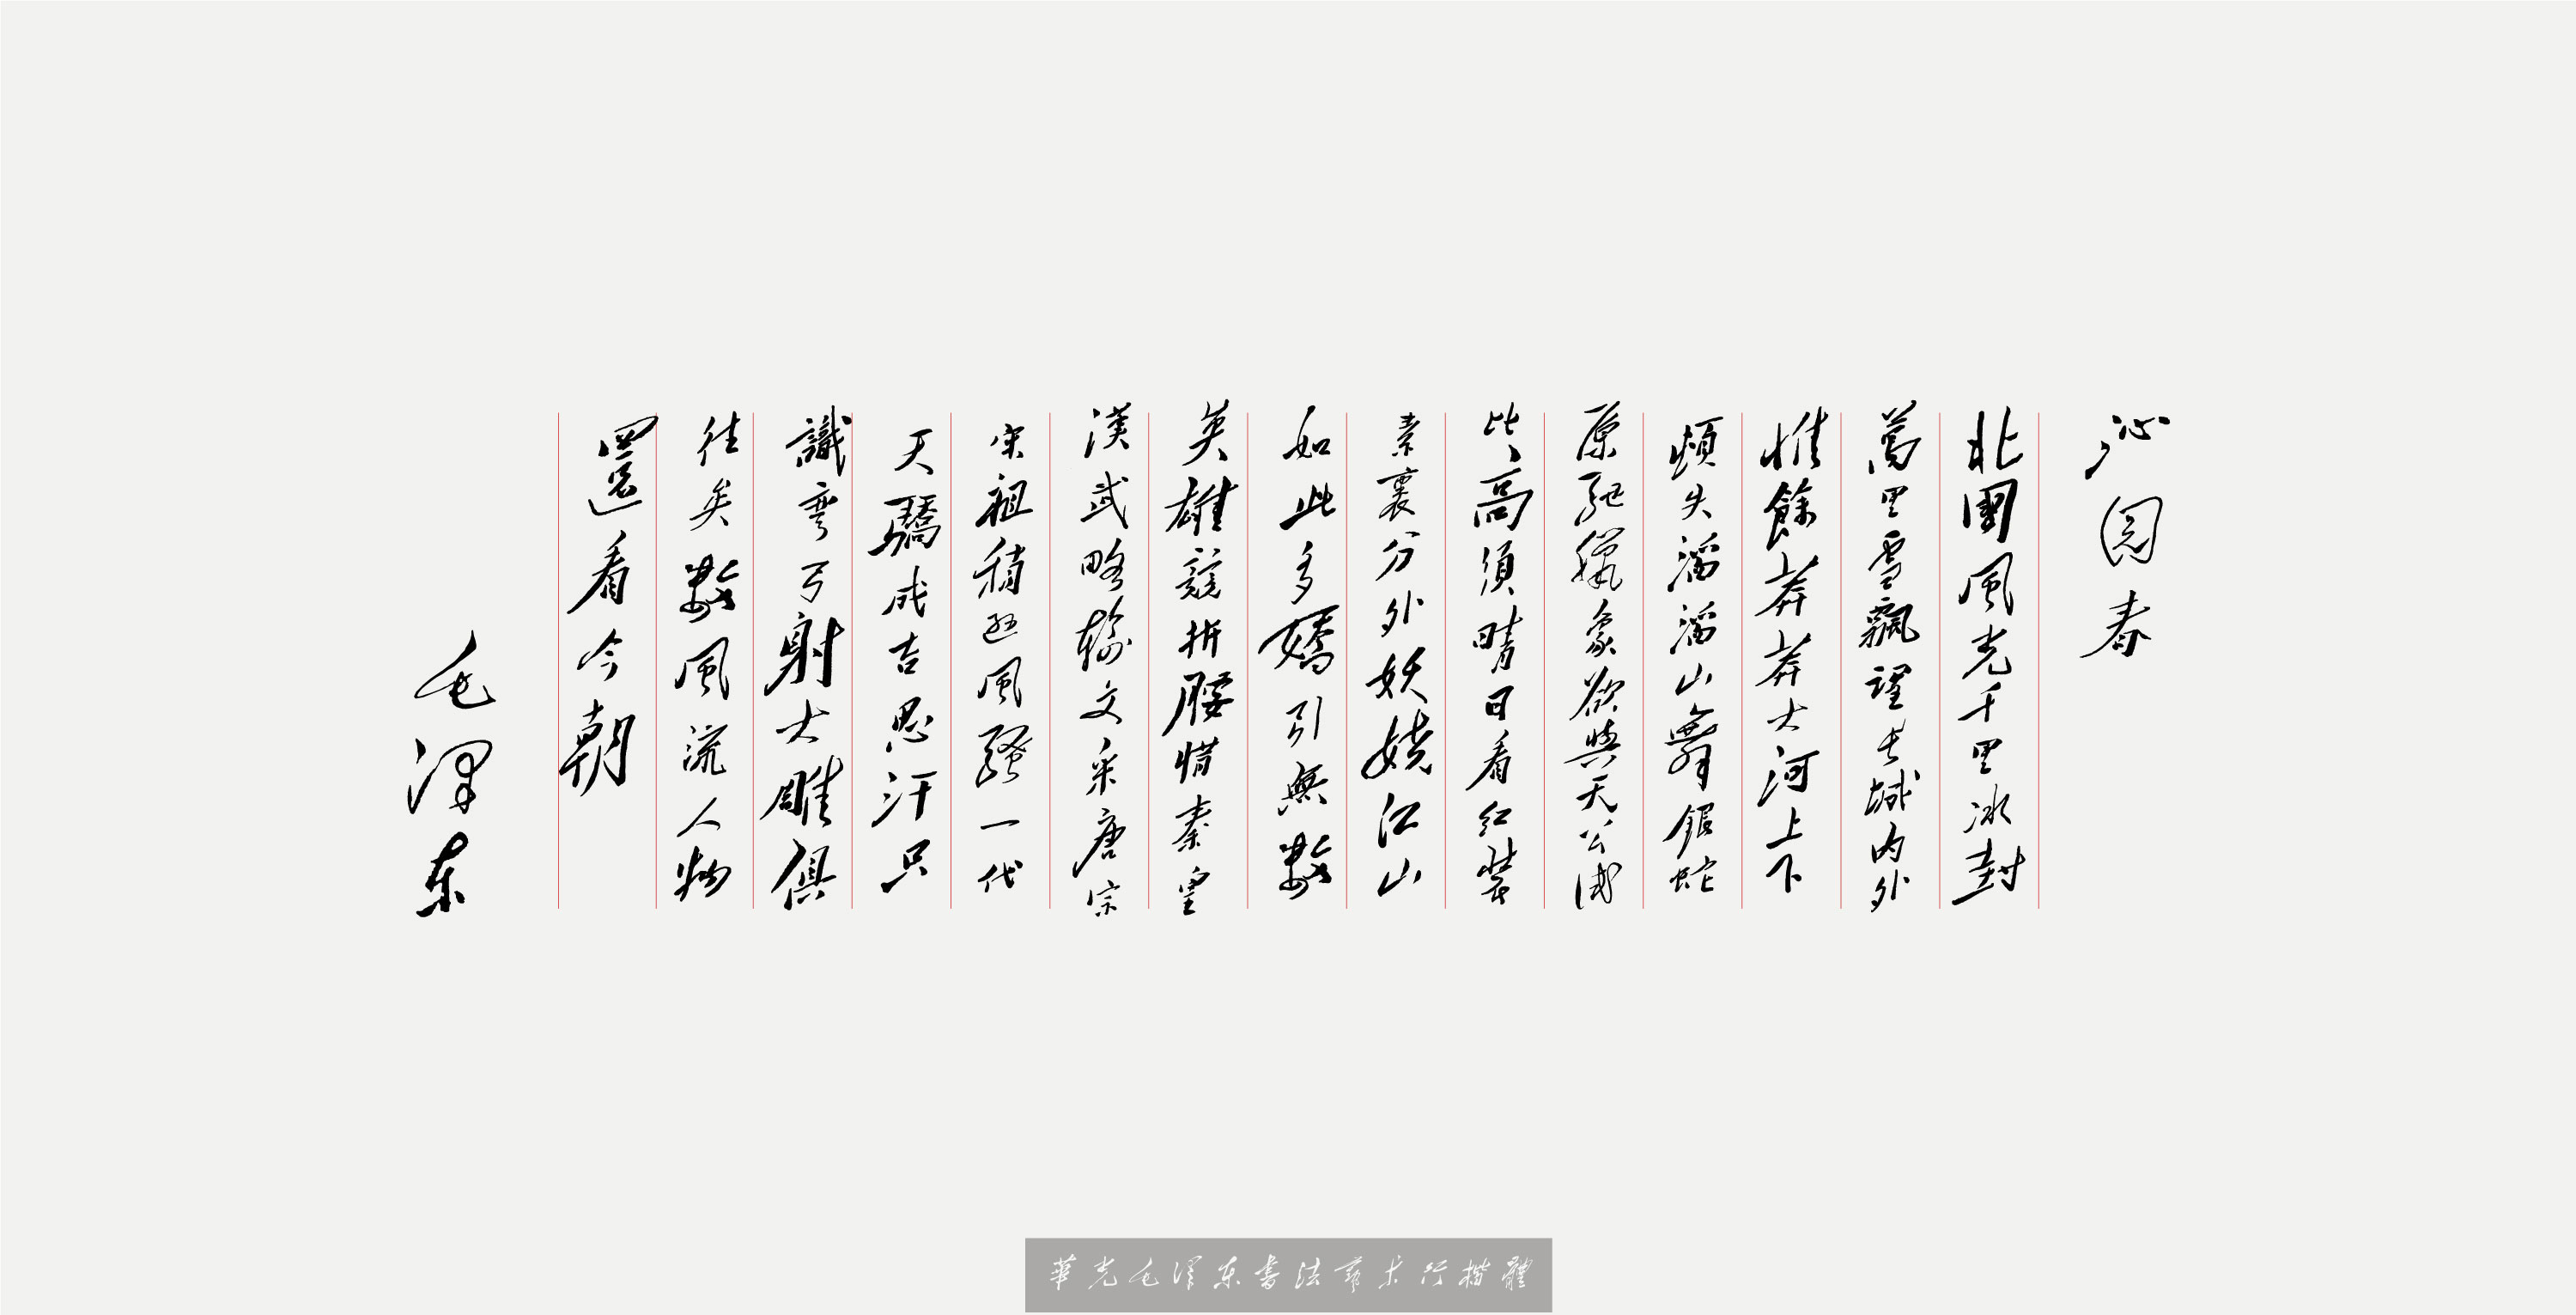 沁园春
北國風光千里冰封
萬里雪飄望长城内外
惟餘莽莽大河上下
頓失滔滔山舞銀蛇
原馳蠟象欲與天公試
比高須晴日看紅裝
素裹分外妖娆江山
如此多嬌引無數
英雄競折腰惜秦皇
漢武略輸文采唐宗
宋祖稍遜風騷一代
天驕成吉思汗只
識彎弓射大雕俱
往矣數風流人物
還看今朝
毛泽东
華光毛泽东書法藝术行楷體